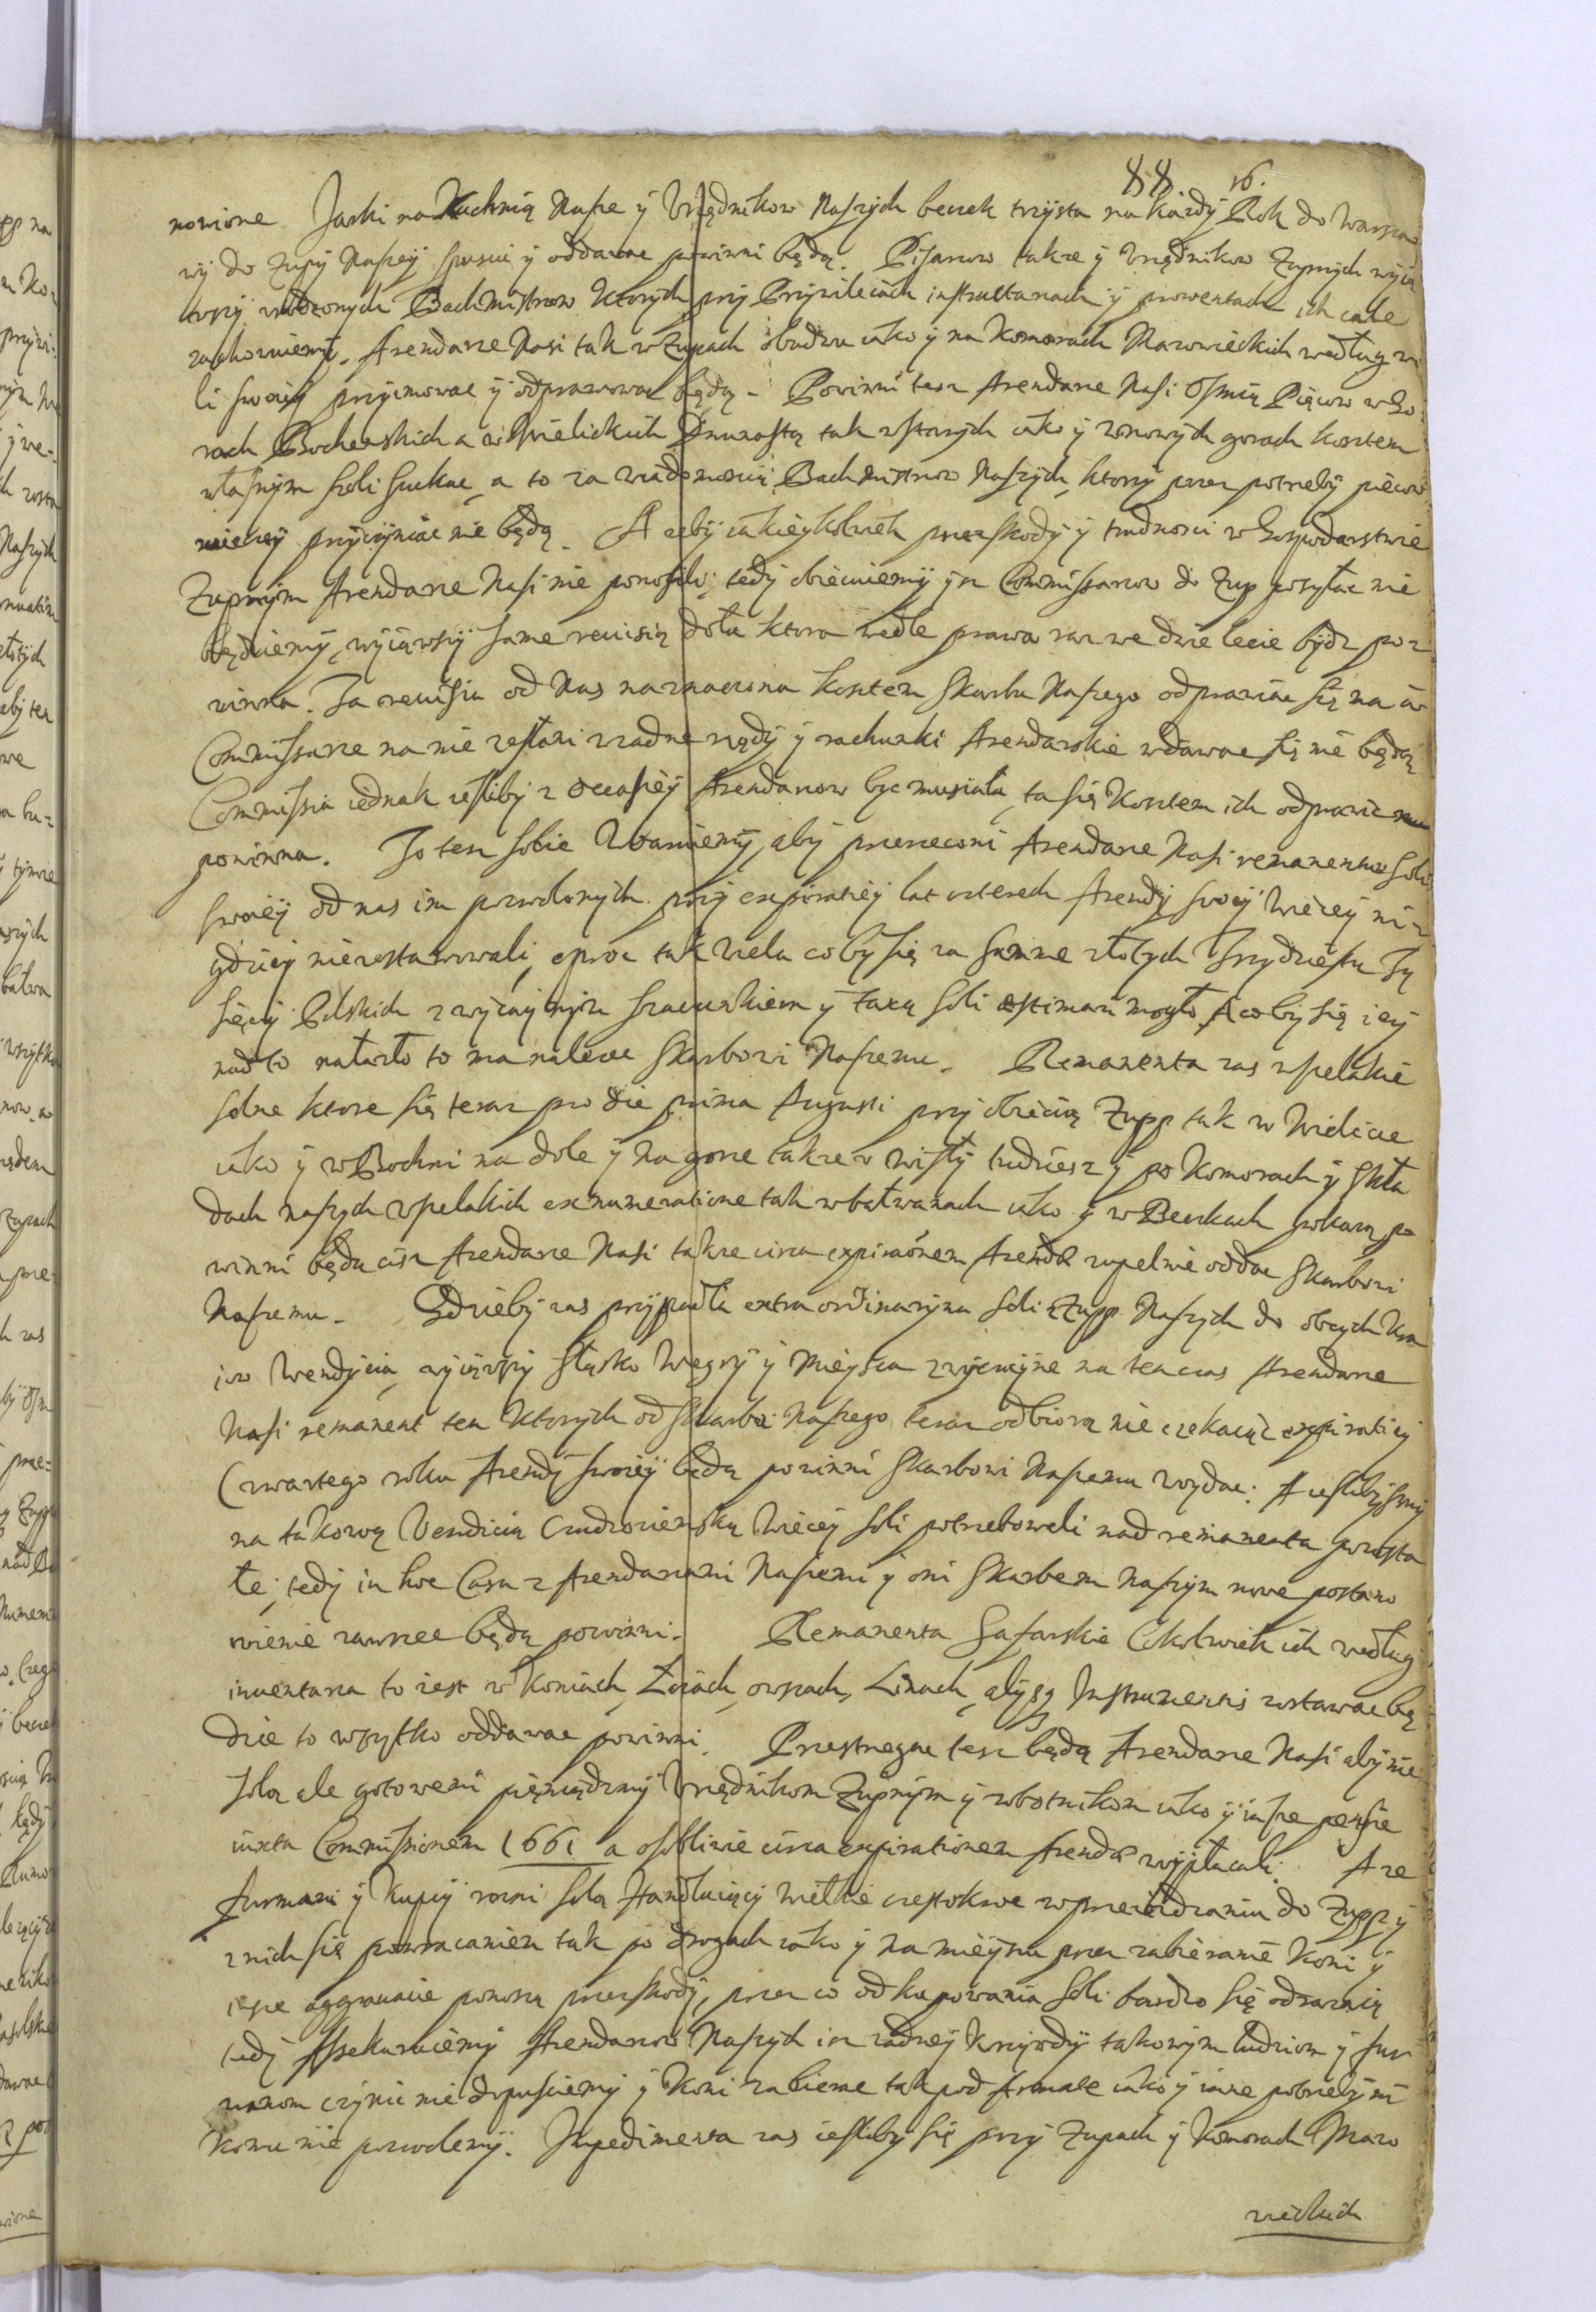 88 16.
nowione Jaski na Kuchnią Nasze ÿ Vrzędnikow Naszych beczek trzysta na każdÿ Rok do Warszaw
wÿ do Zupÿ Naszeÿ spuscic ÿ oddawac powinni będą. Pisarzow takze ÿ Vrzędnikow Zupnych wÿią
wszÿ Bachmistrzow Ktorych przÿ Przÿwileiach instruktarzach ÿ prowentach ich cale
zachowuiemÿ. Arendarze Nasi tak w Zupach obudwu iako ÿ na Komorach Mazowieckich według wo
li swoieÿ przÿimowac ÿ odprawowac będą. Powinni tesz Arendarze Nasi Osmią Piecow w Go
rach Bochenskich a w Wielickich Dwunastą tak w starych iako ÿ w nowÿch gorach kosztem
własnÿm Soli szukac, a to za wiadomoscią Bachmistrzow Naszÿch, ktorzÿ przez potrzebÿ piecow
wiecey przÿczÿniac nie będą. A zebÿ iakieÿkolwiek przeszkodÿ ÿ trudnosci w Gospodarstwie
Zupnÿm Arendarze Nasi nie ponosili, tedÿ obiecuiemÿ ÿsz Commissarzow do Zup posyłac nie
będziemÿ, wÿiąwszÿ same reuisią dołu ktora wedle prawa raz we dwie lecie bÿdz po=
winna. Ta reuisia od Nas naznaczona kosztem Skarbu Naszego odprawiac się ma a
Commissarze na nie zesłani w zadne rządÿ ÿ rachunki Arendarskie wdawac się nie będą
Commissia iednak iesliby z occasieÿ Arendarzow byc musiała, ta się Kosztem ich odprawic
powinna. To tesz sobie Waruiemÿ, abÿ przerzeczoni Arendarze Nasi remanentow Soli
swoieÿ od nas im pozwolonych przÿ expiratieÿ lat czterech Arendÿ swoiÿ wiecey ni=
gdzieÿ niezostawowali, oprocz tak wiela coby się za summe złotych Trzydziestu Ty
sięcÿ Polskich zwÿczaÿnÿm szacunkiem ÿ taxą soli estimari mogło, A coby się ieÿ
nad to nalazło to ma nalezec Skarbowi Naszemu. Remanenta zas wszelakie
solne ktore się teraz pro die prima Augusti przÿ obięciu Zupp tak w Wieliczce
iako ÿ w Bochni na dole ÿ na gorze takze v wisłÿ tudziesz ÿ po Komorach ÿ Skła
dach naszych wszelakich exnumeratione tak w bałwanach iako ÿ w Beczkach pokazą po
winni będą cisz Arendarze Nasi takze circa expirationem Arendæ zupelnie oddac Skarbowi
Naszemu. Gdziebÿ zas przÿpadła extraordinarÿna Soli z Zupp Naszych do obcych Kra
iow Wendÿcia, wÿiąwszÿ Sląsko Węgrÿ ÿ Mieÿsca zwÿczaÿne na tenczas Arendarze
Nasi remanent ten Ktorych od Skarbu Naszego teraz odbiorą nie czekaiąc expiratieÿ
Czwartego roku Arendÿ swoieÿ będą powinni Skarbowi Naszemu wydac. A iesliby smÿ
na takową Vendicią Cudzoziemską wiecey Soli potrzebowali nad remanenta pozosta
łe, tedÿ in hoc Casu z Arendarzami Naszemi ÿ oni Skarbem Naszym nowe postano
wienie zawrzec będą powinni. Remanenta Safarskie Cokolwiek ich według
inuentarza to iest w Koniach, Łoiach, owsach, Linach, alÿsz Instrumenta zostawac bę
dzie to wszÿstko oddawac powinni. Przestrzegac tesz będą Arendarze Nasi abÿ nie
solą ale gotowemi pięniądzmÿ Vrzędnikom Zupnÿm ÿ robotnikom iako ÿ insze pensie
iuxta Commissionem 1661 a osobliwie circa expirationem Arendæ wÿpłacali. A ze
furmani ÿ Kupcÿ rozni solą Handluiącÿ wielkie częstokroc w przeiezdzaniu do Zupp ÿ
z nich się powracaniem tak po drogach iako ÿ na mieÿscu przez zabieranie Koni ÿ
insze aggrauacie ponoszą przeszkodÿ, przez co od kupowania Soli bardzo się odrazaią
tedÿ Assekuruiemÿ Arendarzow Naszych isz zadneÿ Krzÿwdÿ takowÿm ludziom ÿ fur
manom czÿnic nie dopusciemÿ ÿ Koni zabierac tak pod Armate iako ÿ inne potrzebÿ ni
komu nie pozwolemÿ. Impedimenta zas iesliby się przÿ Zupach ÿ Komorach Mazo
wieckich